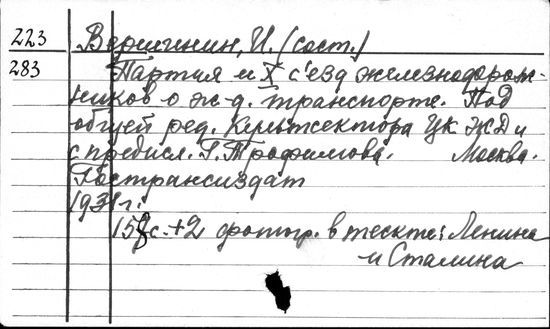 223 Вершинин, И. (сост.)
283 Партия и X с'езд железнодорож-
ников о ж-д. транспорте. Под
общей ред. Культсектора ЦК ЖД и
с предисл. Г. Трофимова. Москва.
Гострансиздат
1931 г.
158 с. + 2 фотогр. в тексте: Ленина
и Сталина